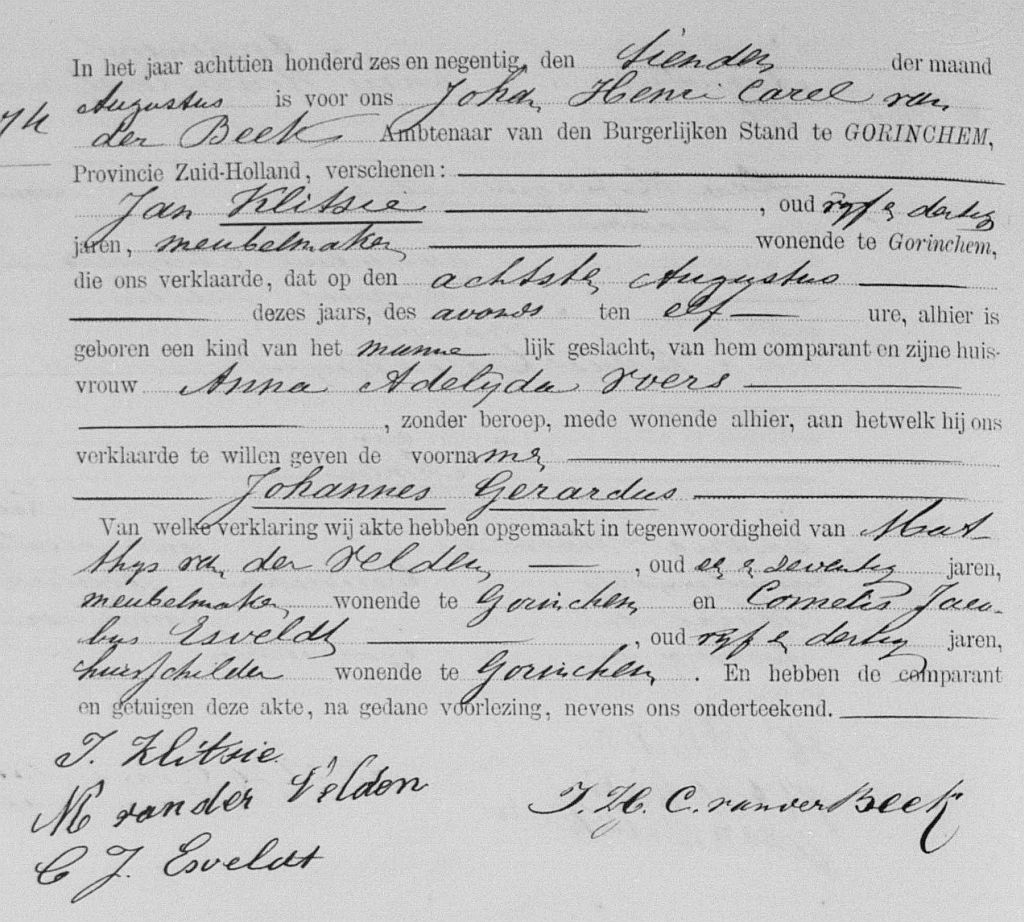 In het jaar achttien honderd zes en negentig, den tienden der maand
Augustus is voor ons Johan Henri Carel van
der Beek Ambtenaar van den Burgerlijken Stand te GORINCHEM,
Provincie Zuid-Holland, verschenen:
Jan Klitsie, oud vyf en dertig
jaren, meubelmaker wonende te Gorinchem,
die ons verklaarde, dat op den achtsten Augustus
dezes jaars, des avonds ten elf ure, alhier is
geboren een kind van het mannelijk geslacht, van hem comparant en zijne huis-
vrouw Anna Adelyda Roers
, zonder beroep, mede wonende alhier, aan hetwelk hij ons
verklaarde te willen geven de voornamen
Johannes Gerardus
Van welke verklaring wij akte hebben opgemaakt in tegenwoordigheid van Mat-
thys van der Velden, oud een en zeventig jaren,
meubelmaker wonende te Gorinchem en Cornelis Jaco-
bus Esveldt, oud vyf en dertig jaren,
huisschilder wonende te Gorinchem. En hebben de comparant
en getuigen deze akte, na gedane voorlezing, nevens ons onderteekend.
J. Klitsie.
M van der Velden
J. H. C. van der Beek
C J. Esveldt